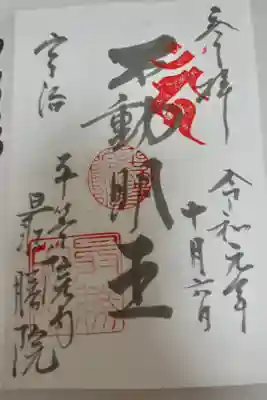 奉拝
令和元年
十月六日
不動明王
宇治
平等院内
最勝院